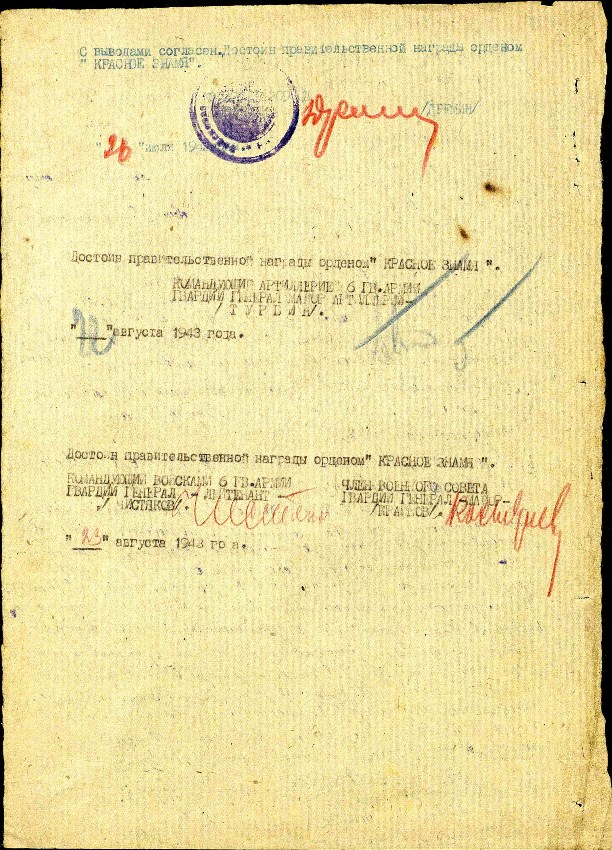 С выводами согласен.Достоин правительственной награды орденом
" КРАСНОЕ ЗНАМЯ".
/ДРЕМИН/
" 26 "июля 194
Достоин правительственной награды орденом" КРАСНОЕ ЗНАМЯ ".
КОМАНДУЮЩИЙ АРТИЛЛЕРИЕЙ 6 ГВ.АРМИИ
ГВАРДИИ ГЕНЕРАЛ МАЙОР АРТИЛЛЕРИИ-
/ ТУРБИН/.
"22"августа 1943 года.
Достоин правительственной награды орденом" КРАСНОЕ ЗНАМЯ ".
КОМАНДУЮЩИЙ ВОЙСКАМИ 6 ГВ.АРМИИ
ГВАРДИИ ГЕНЕРАЛ - ЛЕЙТЕНАНТ
/ ЧИСТЯКОВ/.
ЧЛЕН ВОЕННОГО СОВЕТА
ГВАРДИИ ГЕНЕРАЛ МАЙОР-
/КРАЙНОВ/.
"23" августа 1943 го а.